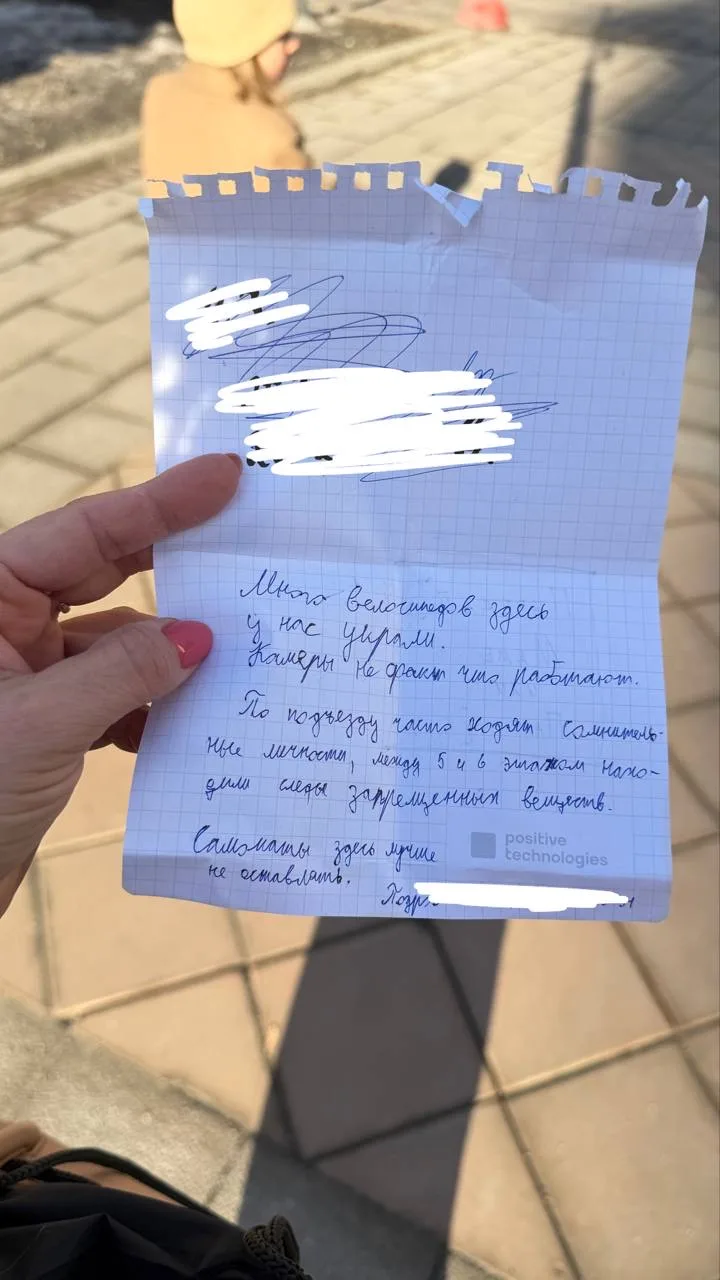 Много велосипедов здесь
у нас украли.
Камеры не факт что работают.
По подъезду часто ходят сомнитель-
ные личности, между 5 и 6 этажом нахо-
дили следы запрещенных веществ.
Самокаты здесь лучше
не оставлять.
positive
technologies